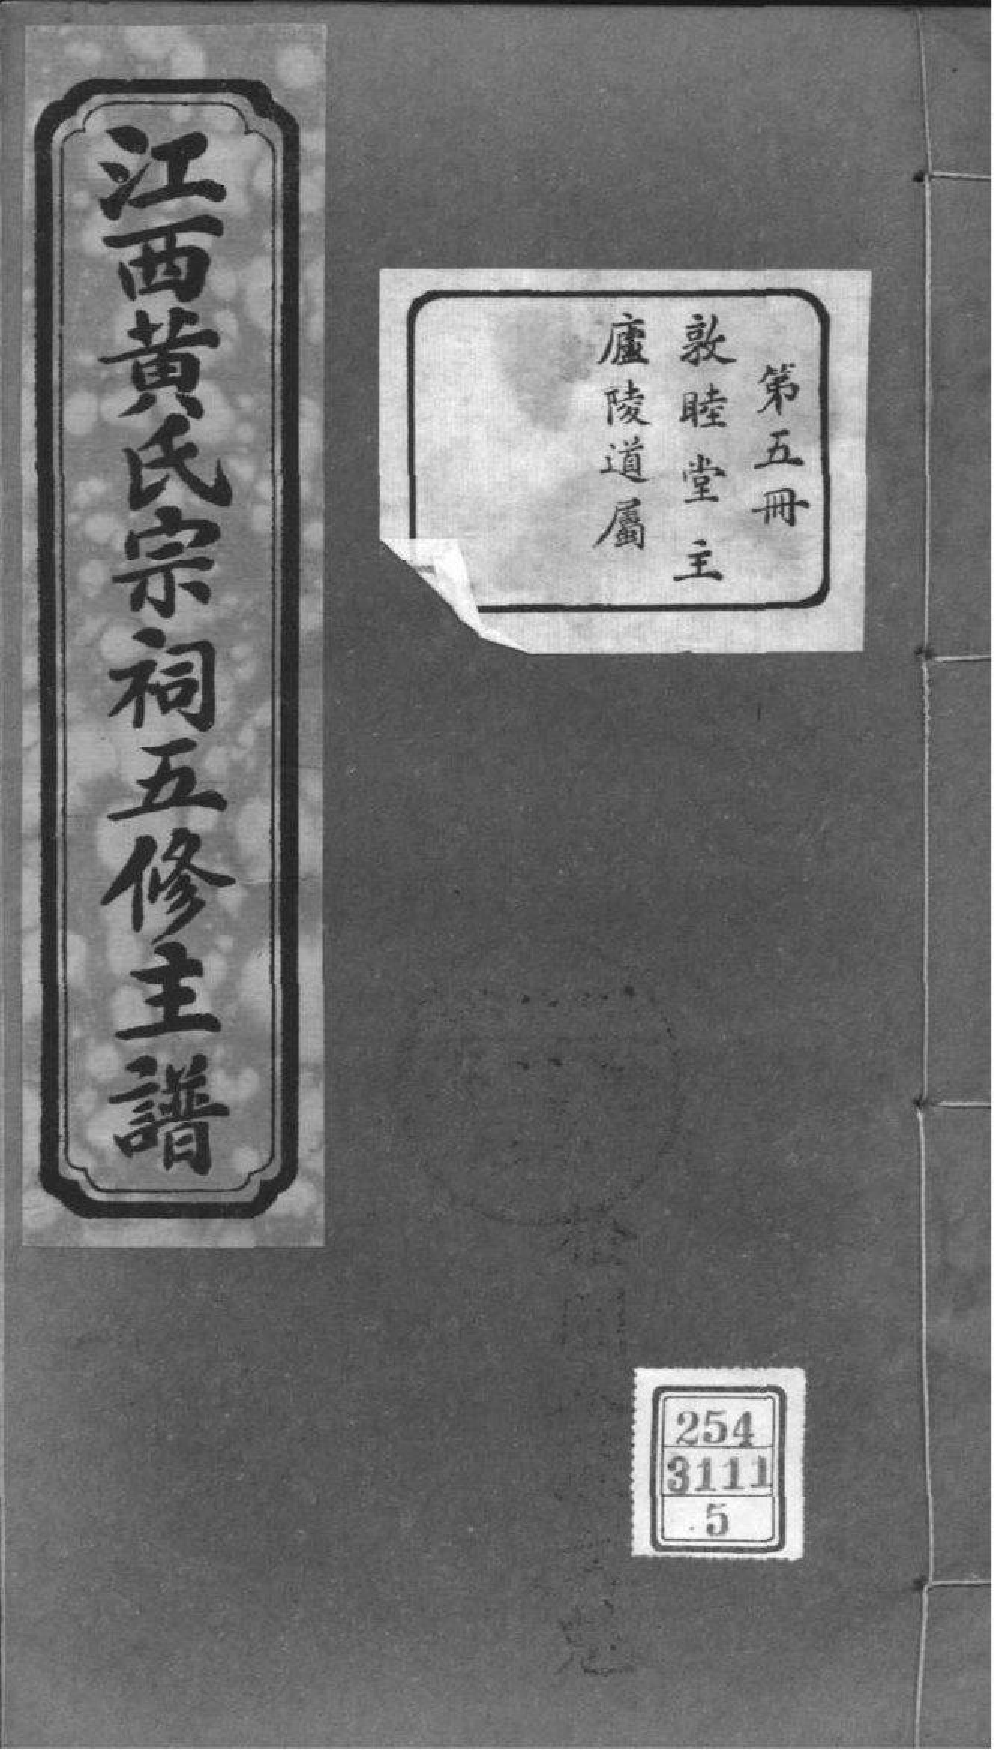 江西黃氏宗祠五修主譜
第五冊
敦睦堂主
廬陵道屬
254
3111
5